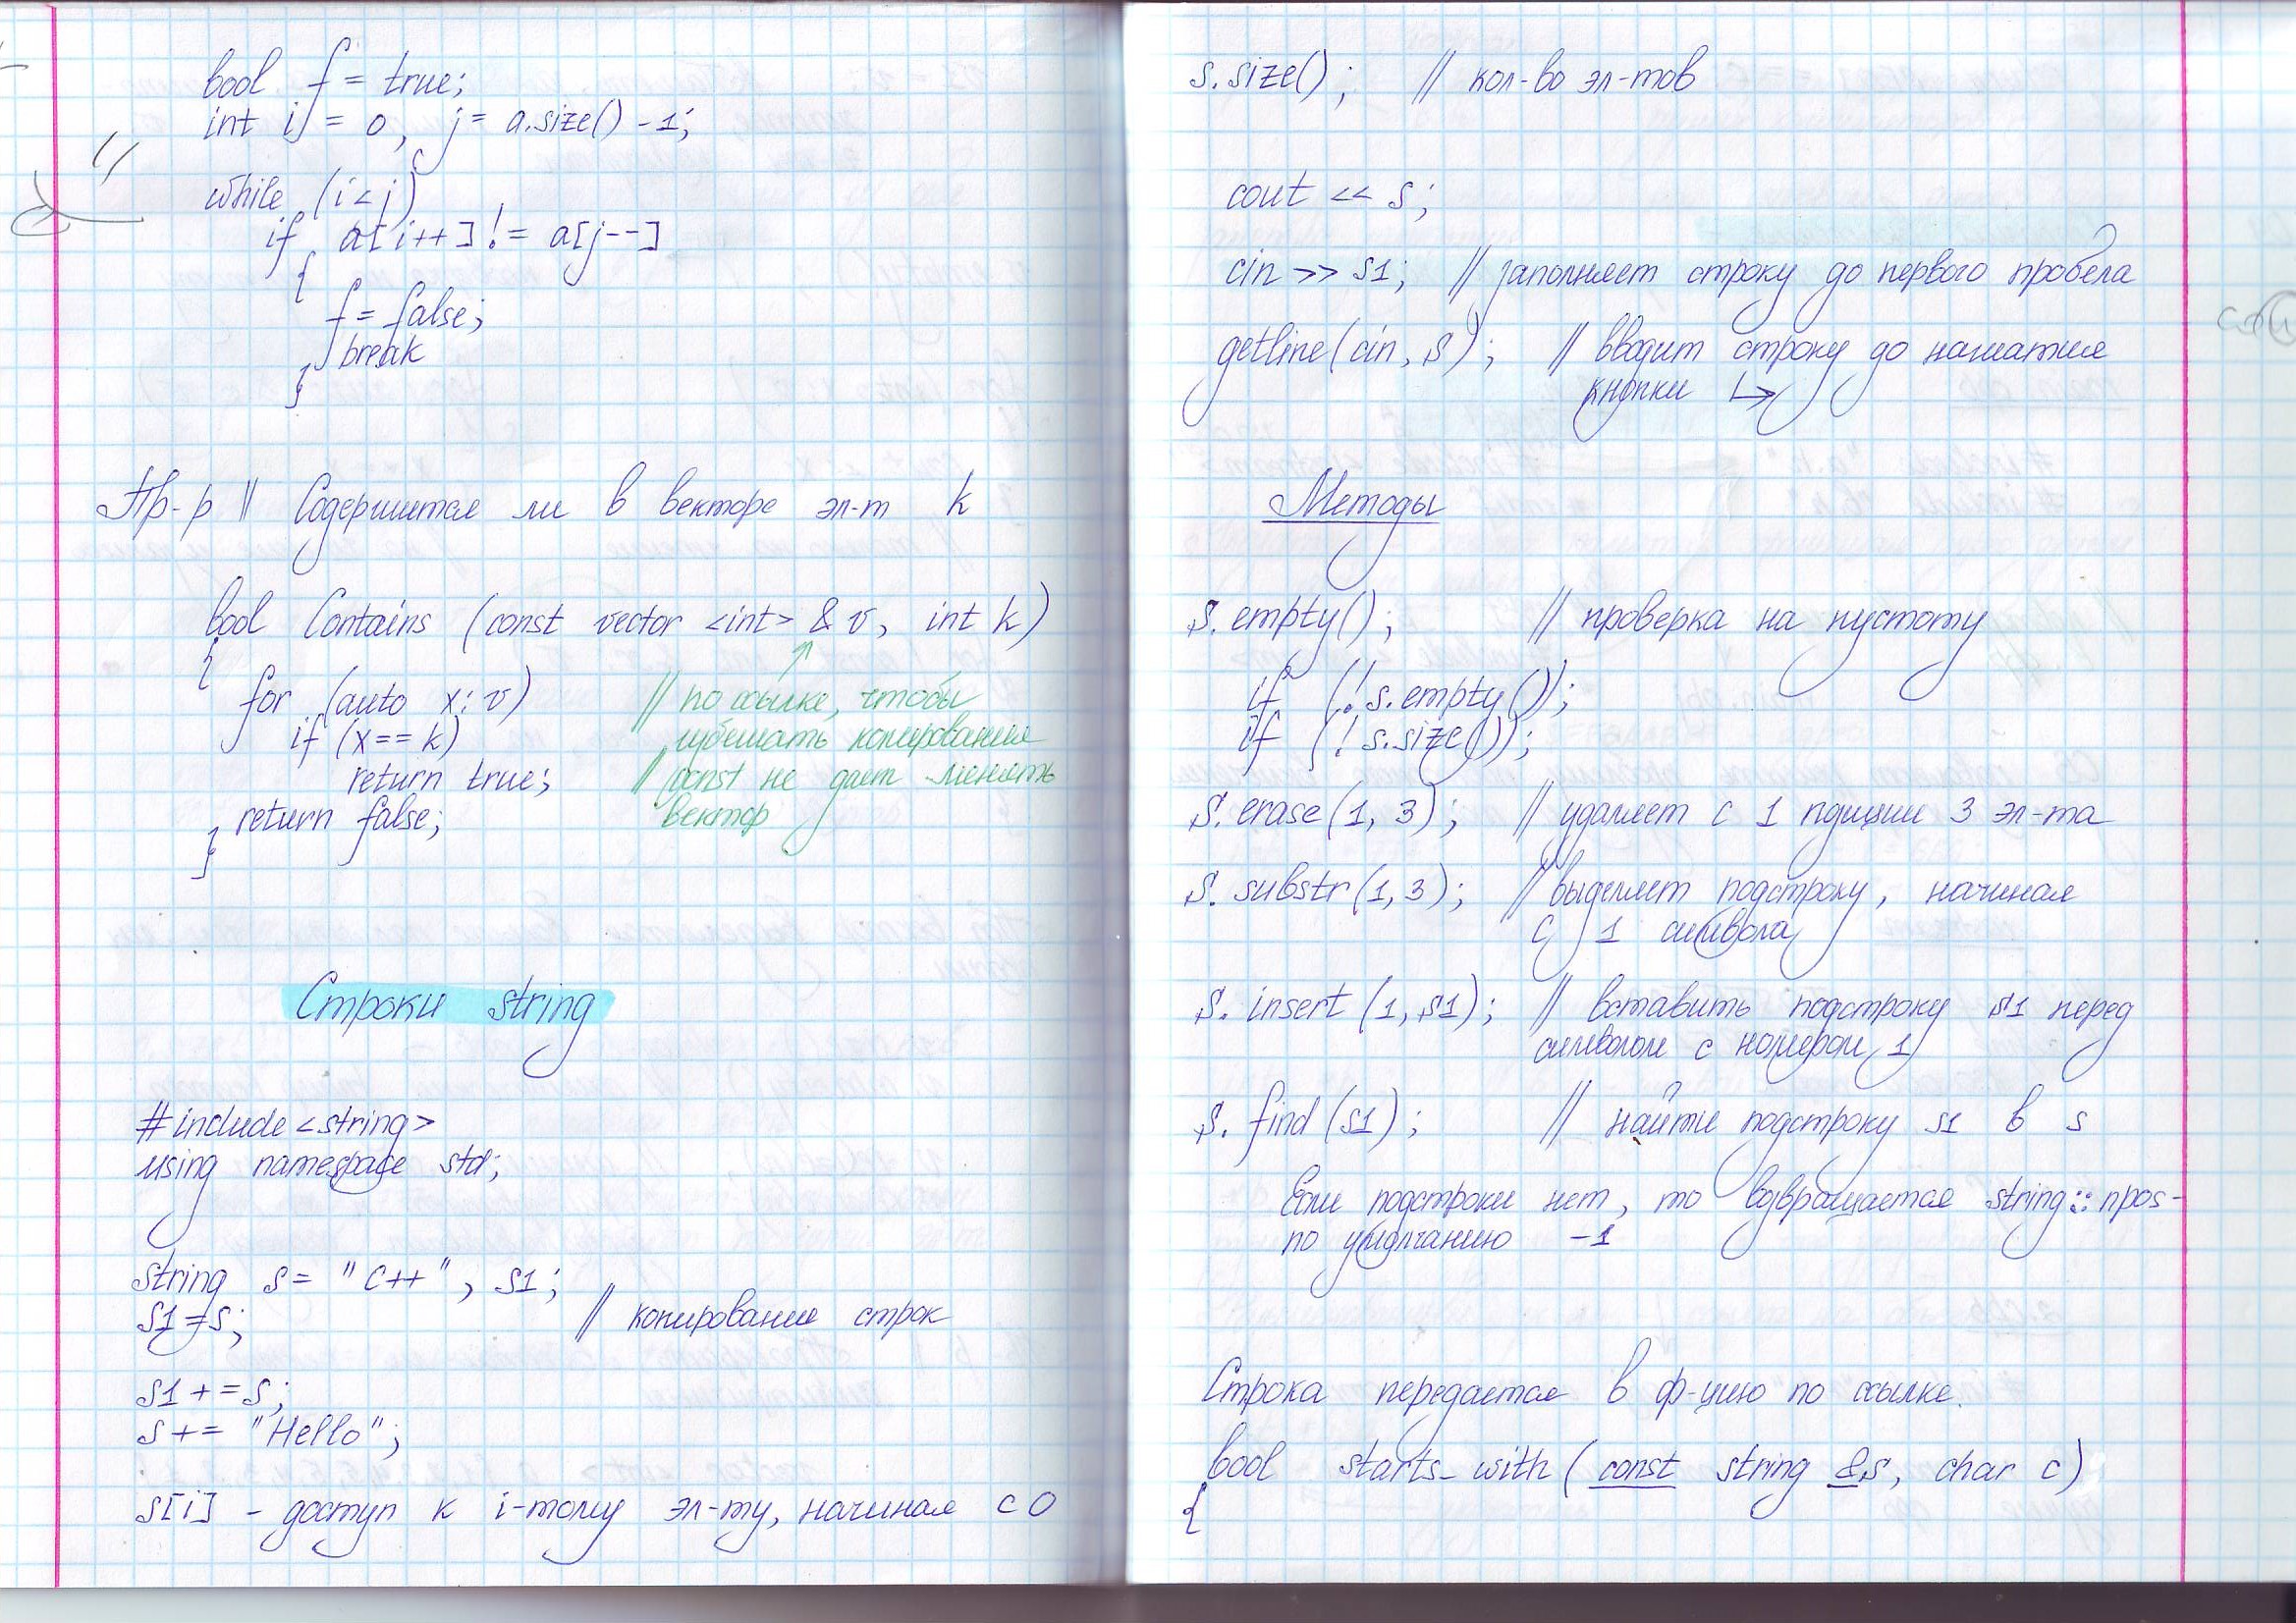 bool f = true;
int i = 0, j = a.size() - 1;
while (i < j)
if a[i++] != a[j--]
{
f = false;
break
}
Пр-р // Содержится ли в векторе эл-т k
bool Contains (const vector <int> & v, int k)
{
for (auto x: v)
if (x == k)
return true;
return false;
}
// по ссылке, чтобы
избежать копирования
// const не дает менять
вектор
Строки string
#include <string>
using namespace std;
string s = "C++", s1;
s1 = s; // копирование строк
s1 += s;
s += "Hello";
s[i] - доступ к i-тому эл-ту, начиная с 0
s.size(); // кол-во эл-тов
cout << s;
cin >> s1; // заполняет строку до первого пробела
getline(cin, s); // вводит строку до нажатия
кнопки ↳
Методы
s.empty(); // проверка на пустоту
if (! s.empty());
if (! s.size());
s.erase(1, 3); // удаляет с 1 пзиции 3 эл-та
s.substr(1, 3); // выделяет подстроку, начиная
с 1 символа
s.insert(1, s1); // вставить подстроку s1 перед
символом с номером 1
s.find(s1); // найти подстроку s1 в s
Если подстроки нет, то возвращается string::npos -
по умолчанию -1
Строка передается в ф-цию по ссылке.
bool starts_with (const string &s, char c)
{